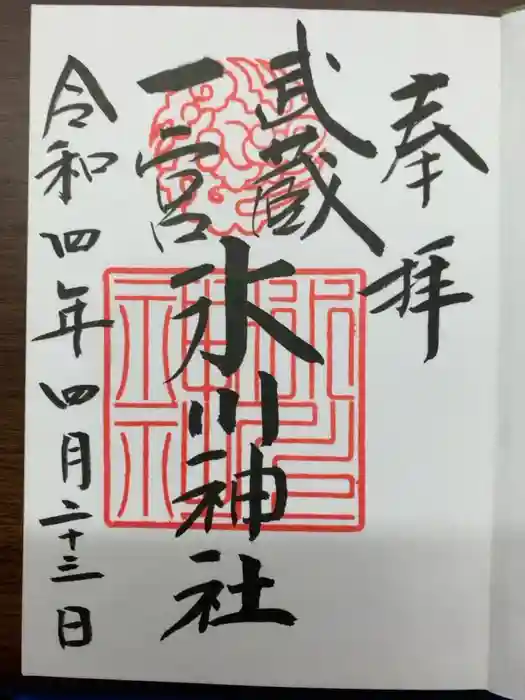 奉拝
武蔵
一宮
氷川神社
令和四年四月二十三日
氷川神社